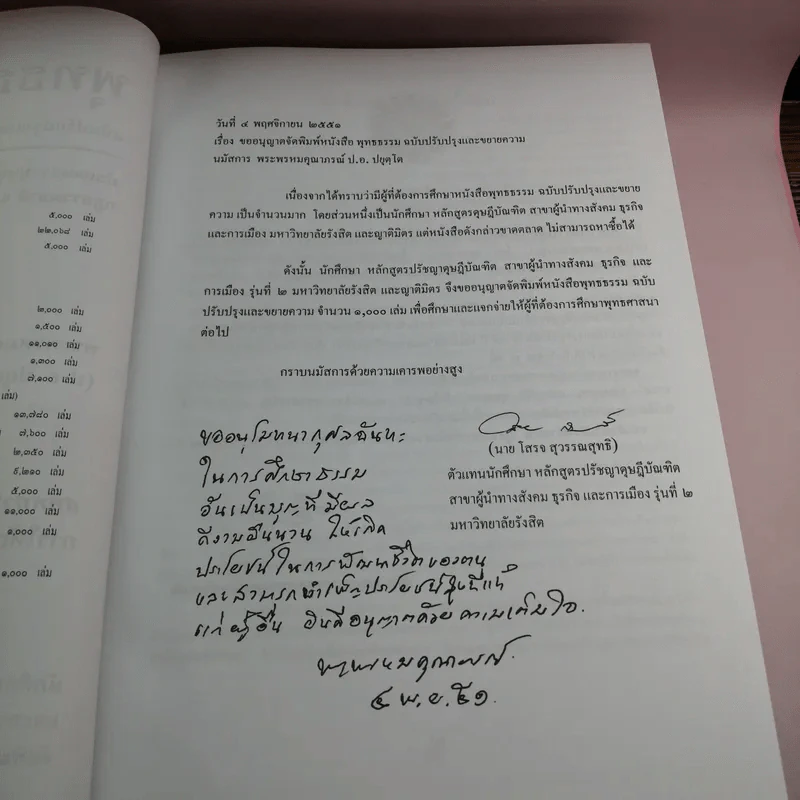 พุทธ
๕,๐๐๐ เล่ม
๒๒,๐๖๘ เล่ม
๕,๐๐๐ เล่ม
๒,๐๐๐ เล่ม
๑,๕๐๐ เล่ม
๑๑,๐๑๐ เล่ม
๑,๓๐๐ เล่ม
๗,๑๐๐ เล่ม
เล่ม)
๑๓,๗๘๐ เล่ม
๗,๖๐๐ เล่ม
๒,๓๕๐ เล่ม
๖,๒๑๐ เล่ม
๕,๐๐๐ เล่ม
๑๑,๐๐๐ เล่ม
๑,๐๐๐ เล่ม
๑,๐๐๐ เล่ม
วันที่ ๔ พฤศจิกายน ๒๕๕๑
เรื่อง ขออนุญาตจัดพิมพ์หนังสือ พุทธธรรม ฉบับปรับปรุงและขยายความ
นมัสการ พระพรหมคุณาภรณ์ ป.อ. ปยุตฺโต
เนื่องจากได้ทราบว่ามีผู้ที่ต้องการศึกษาหนังสือพุทธธรรม ฉบับปรับปรุงและขยาย
ความ เป็นจำนวนมาก โดยส่วนหนึ่งเป็นนักศึกษา หลักสูตรดุษฎีบัณฑิต สาขาผู้นำทางสังคม ธุรกิจ
และการเมือง มหาวิทยาลัยรังสิต และญาติมิตร แต่หนังสือดังกล่าวขาดตลาด ไม่สามารถหาซื้อได้
ดังนั้น นักศึกษา หลักสูตรปรัชญาดุษฎีบัณฑิต สาขาผู้นำทางสังคม ธุรกิจ และ
การเมือง รุ่นที่ ๒ มหาวิทยาลัยรังสิต และญาติมิตร จึงขออนุญาตจัดพิมพ์หนังสือพุทธธรรม ฉบับ
ปรับปรุงและขยายความ จำนวน ๑,๐๐๐ เล่ม เพื่อศึกษาและแจกจ่ายให้ผู้ที่ต้องการศึกษาพุทธศาสนา
ต่อไป
กราบนมัสการด้วยความเคารพอย่างสูง
(นาย โสรจ สุวรรณสุทธิ)
ตัวแทนนักศึกษา หลักสูตรปรัชญาดุษฎีบัณฑิต
สาขาผู้นำทางสังคม ธุรกิจ และการเมือง รุ่นที่ ๒
มหาวิทยาลัยรังสิต
ขออนุโมทนากุศลฉันทะ
ในการศึกษาธรรม
อันเป็นบุญที่มีผล
ดีงามยืนนาน ให้เกิด
ประโยชน์ในการพัฒนาชีวิตของตน
และสามารถทำ ประโยชน์สุขที่แท้
แก่ผู้อื่น ยินดีอนุญาตด้วยความเต็มใจ.
พระพรหมคุณาภรณ์.
๔ พ.ย. ๕๑.